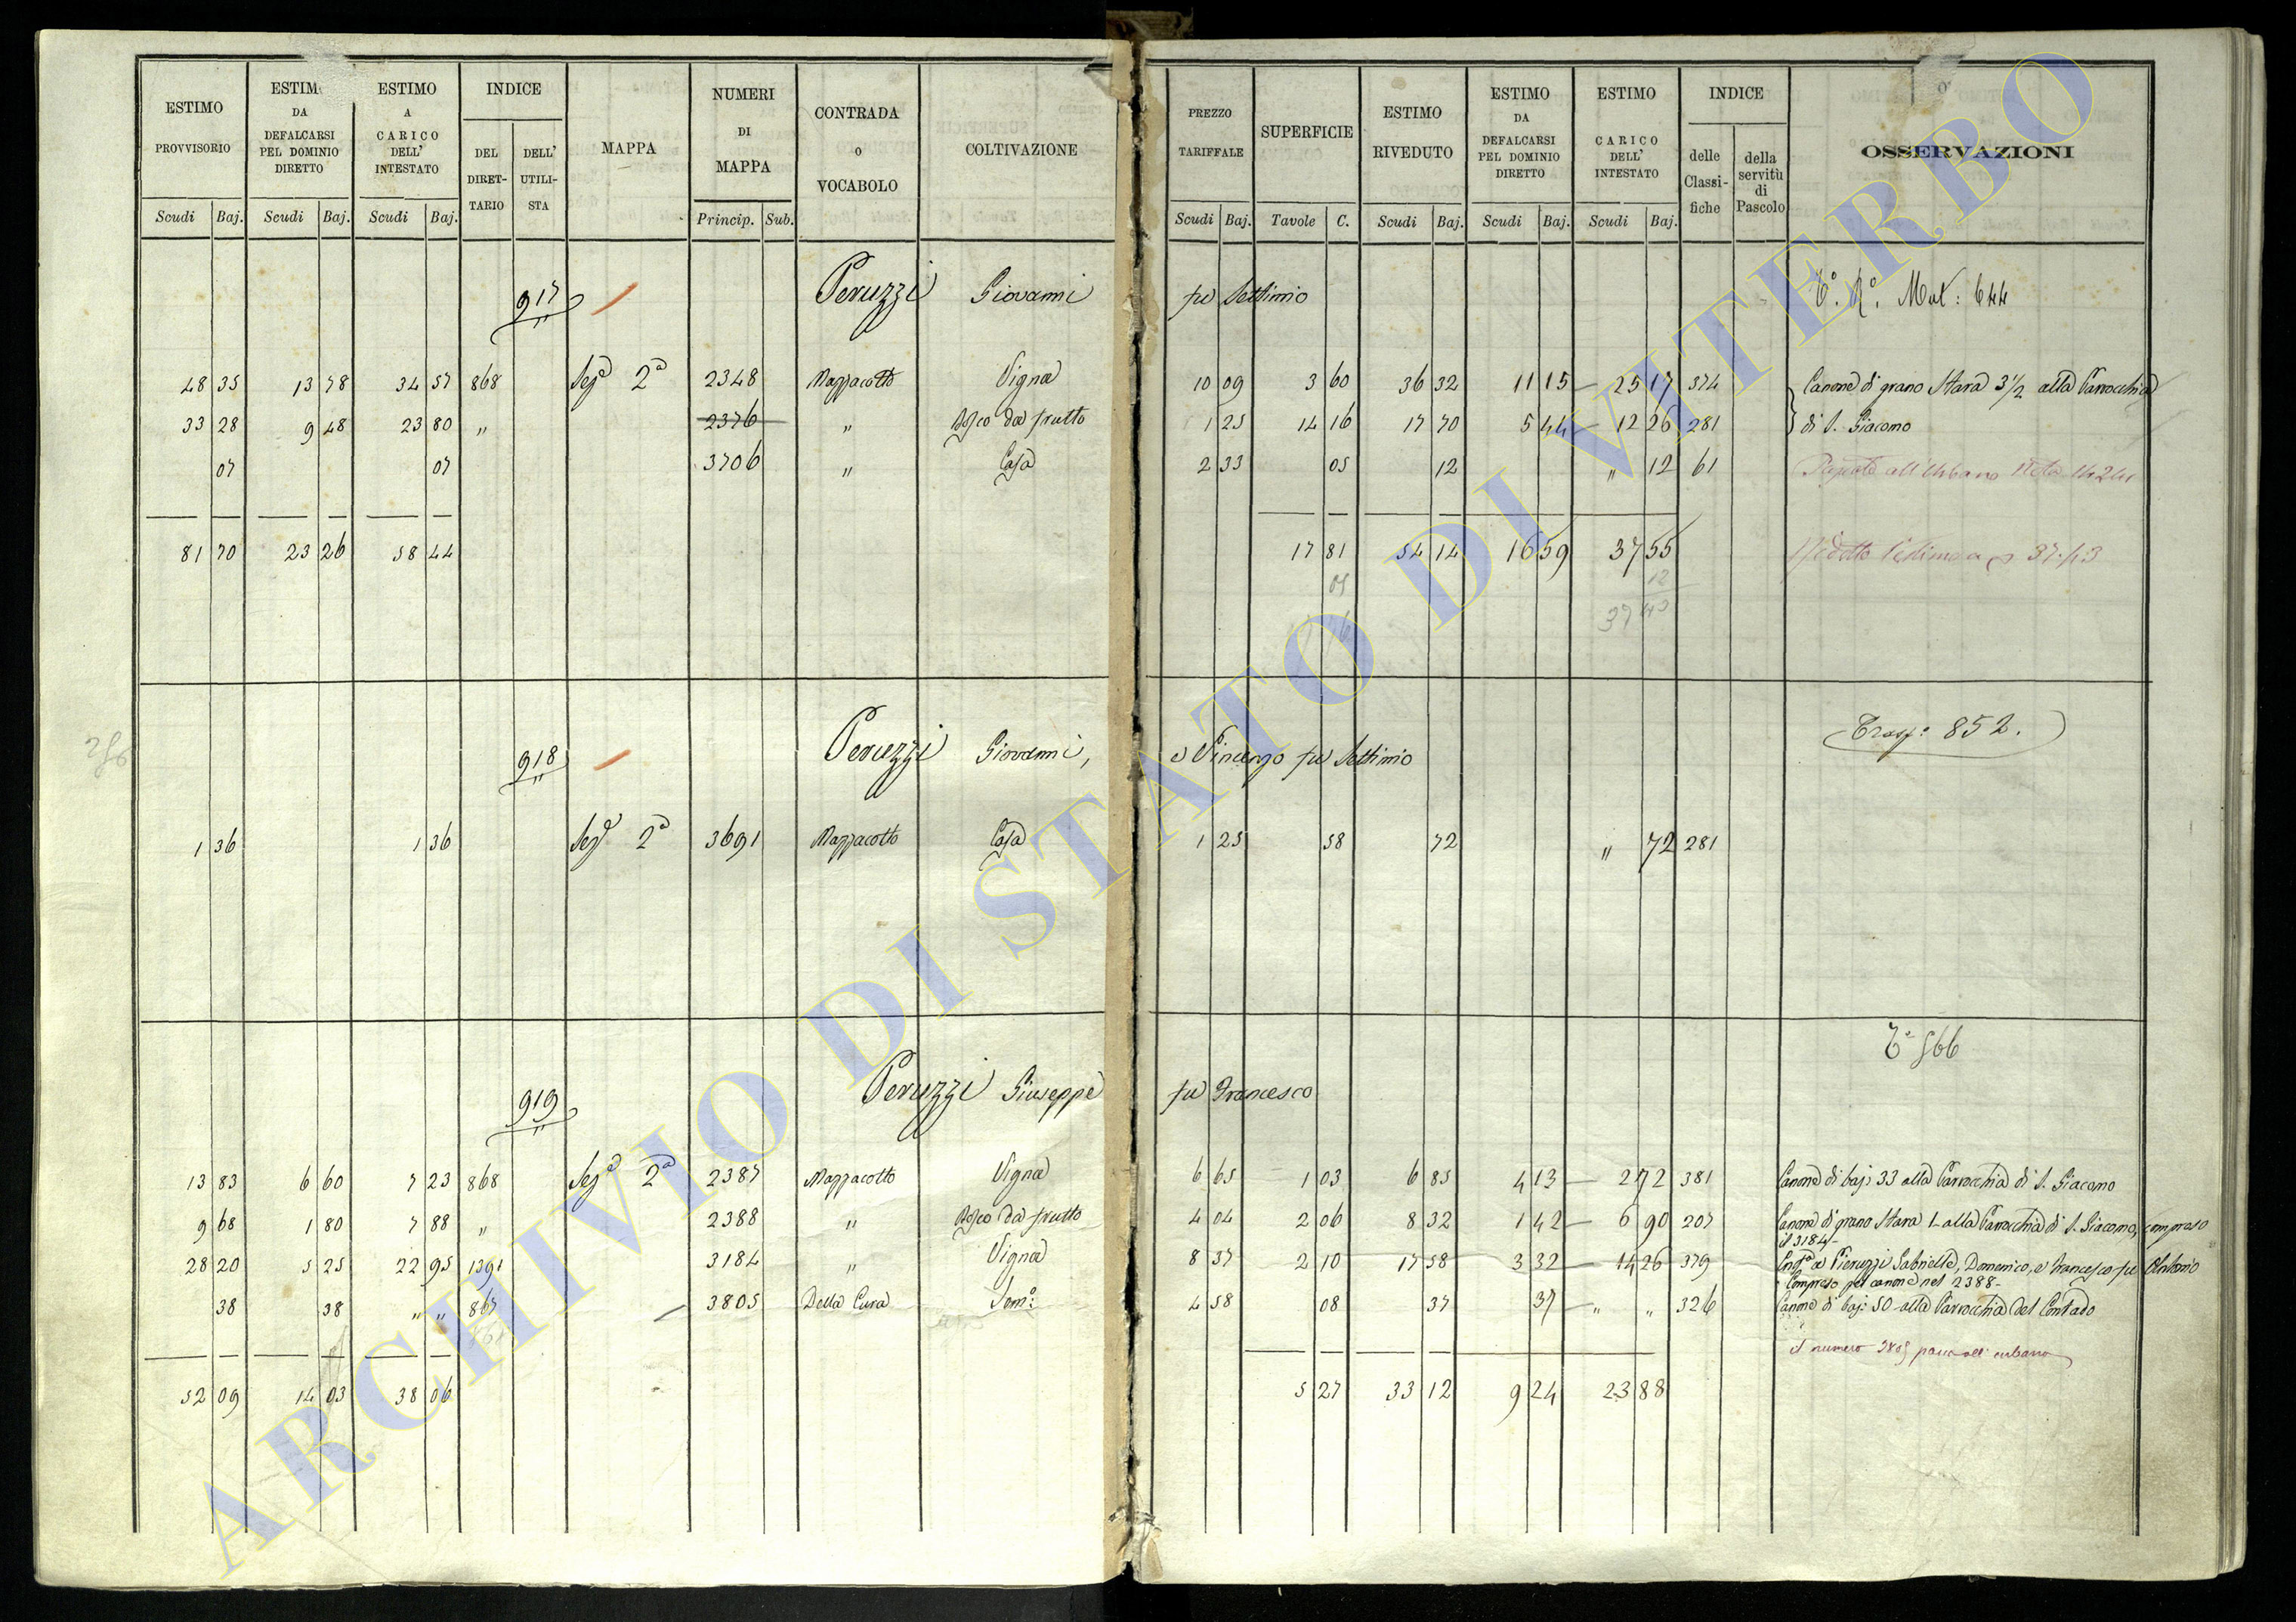 ESTIMO PROVVISORIO
ESTIM DA DEFALCARSI PEL DOMINIO DIRETTO
ESTIMO A CARICO DELL' INTESTATO
INDICE
DEL DIRET-TARIO
DELL' UTILI-STA
MAPPA
NUMERI DI MAPPA
CONTRADA O VOCABOLO
COLTIVAZIONE
PREZZO TARIFFALE
SUPERFICIE
ESTIMO RIVEDUTO
ESTIMO DA DEFALCARSI PEL DOMINIO DIRETTO
ESTIMO CARICO DELL' INTESTATO
INDICE
delle Classi-fiche
della servitù di Pascolo
OSSERVAZIONI
Scudi Baj. Scudi Baj. Scudi Baj. Princip. Sub. Scudi Baj. Tavole C. Scudi Baj. Scudi Baj. Scudi Baj.
917 Peruzzi Giovanni fu Settimio Mut: 644
48 35 13 78 34 57 868 Sez 2a 2348 Mazzacotto Vigna 10 09 3 60 36 32 11 15 25 17 374 Canone di grano Stara 3 1/2 alla Parrocchia
33 28 9 48 23 80 " 2376 " da frutto 1 25 14 16 17 70 5 44 12 26 281 di S. Giacomo
07 07 3706 " Casa 2 33 05 12 " 12 61 all'Urbano
81 70 23 26 58 44 17 81 54 14 16 59 37 55 37.43
05 12
37 43
918 Peruzzi Giovanni, e Vincenzo fu Settimio Trasp: 852.
1 36 1 36 Sez 2a 3691 Mazzacotto Casa 1 25 58 72 " 72 281
919 Peruzzi Giuseppe fu Francesco 566
13 83 6 60 7 23 868 Sez 2a 2387 Mazzacotto Vigna 6 65 1 03 6 85 4 13 2 72 381 Canone di baj: 33 alla Parrocchia di S. Giacomo
9 68 1 80 7 88 " 2388 " da frutto 4 04 2 06 8 32 1 42 6 90 207 Canone di grano Stara 1 alla Parrocchia di S. Giacomo, compreso
il 3184
28 20 5 25 22 95 1391 3184 " Vigna 8 37 2 10 17 58 3 32 14 26 379 a Pieruzzi Gabriella, Domenico, e Francesco fu Antonio
Compreso pel canone nel 2388
38 38 " " 867 3805 Della Cura Sem: 4 58 08 37 37 " " 326 Canone di baj: 50 alla Parrocchia del Contado
il numero 3805 passa all'urbano
52 09 14 03 38 06 5 27 33 12 9 24 23 88
ARCHIVIO DI STATO DI VITERBO